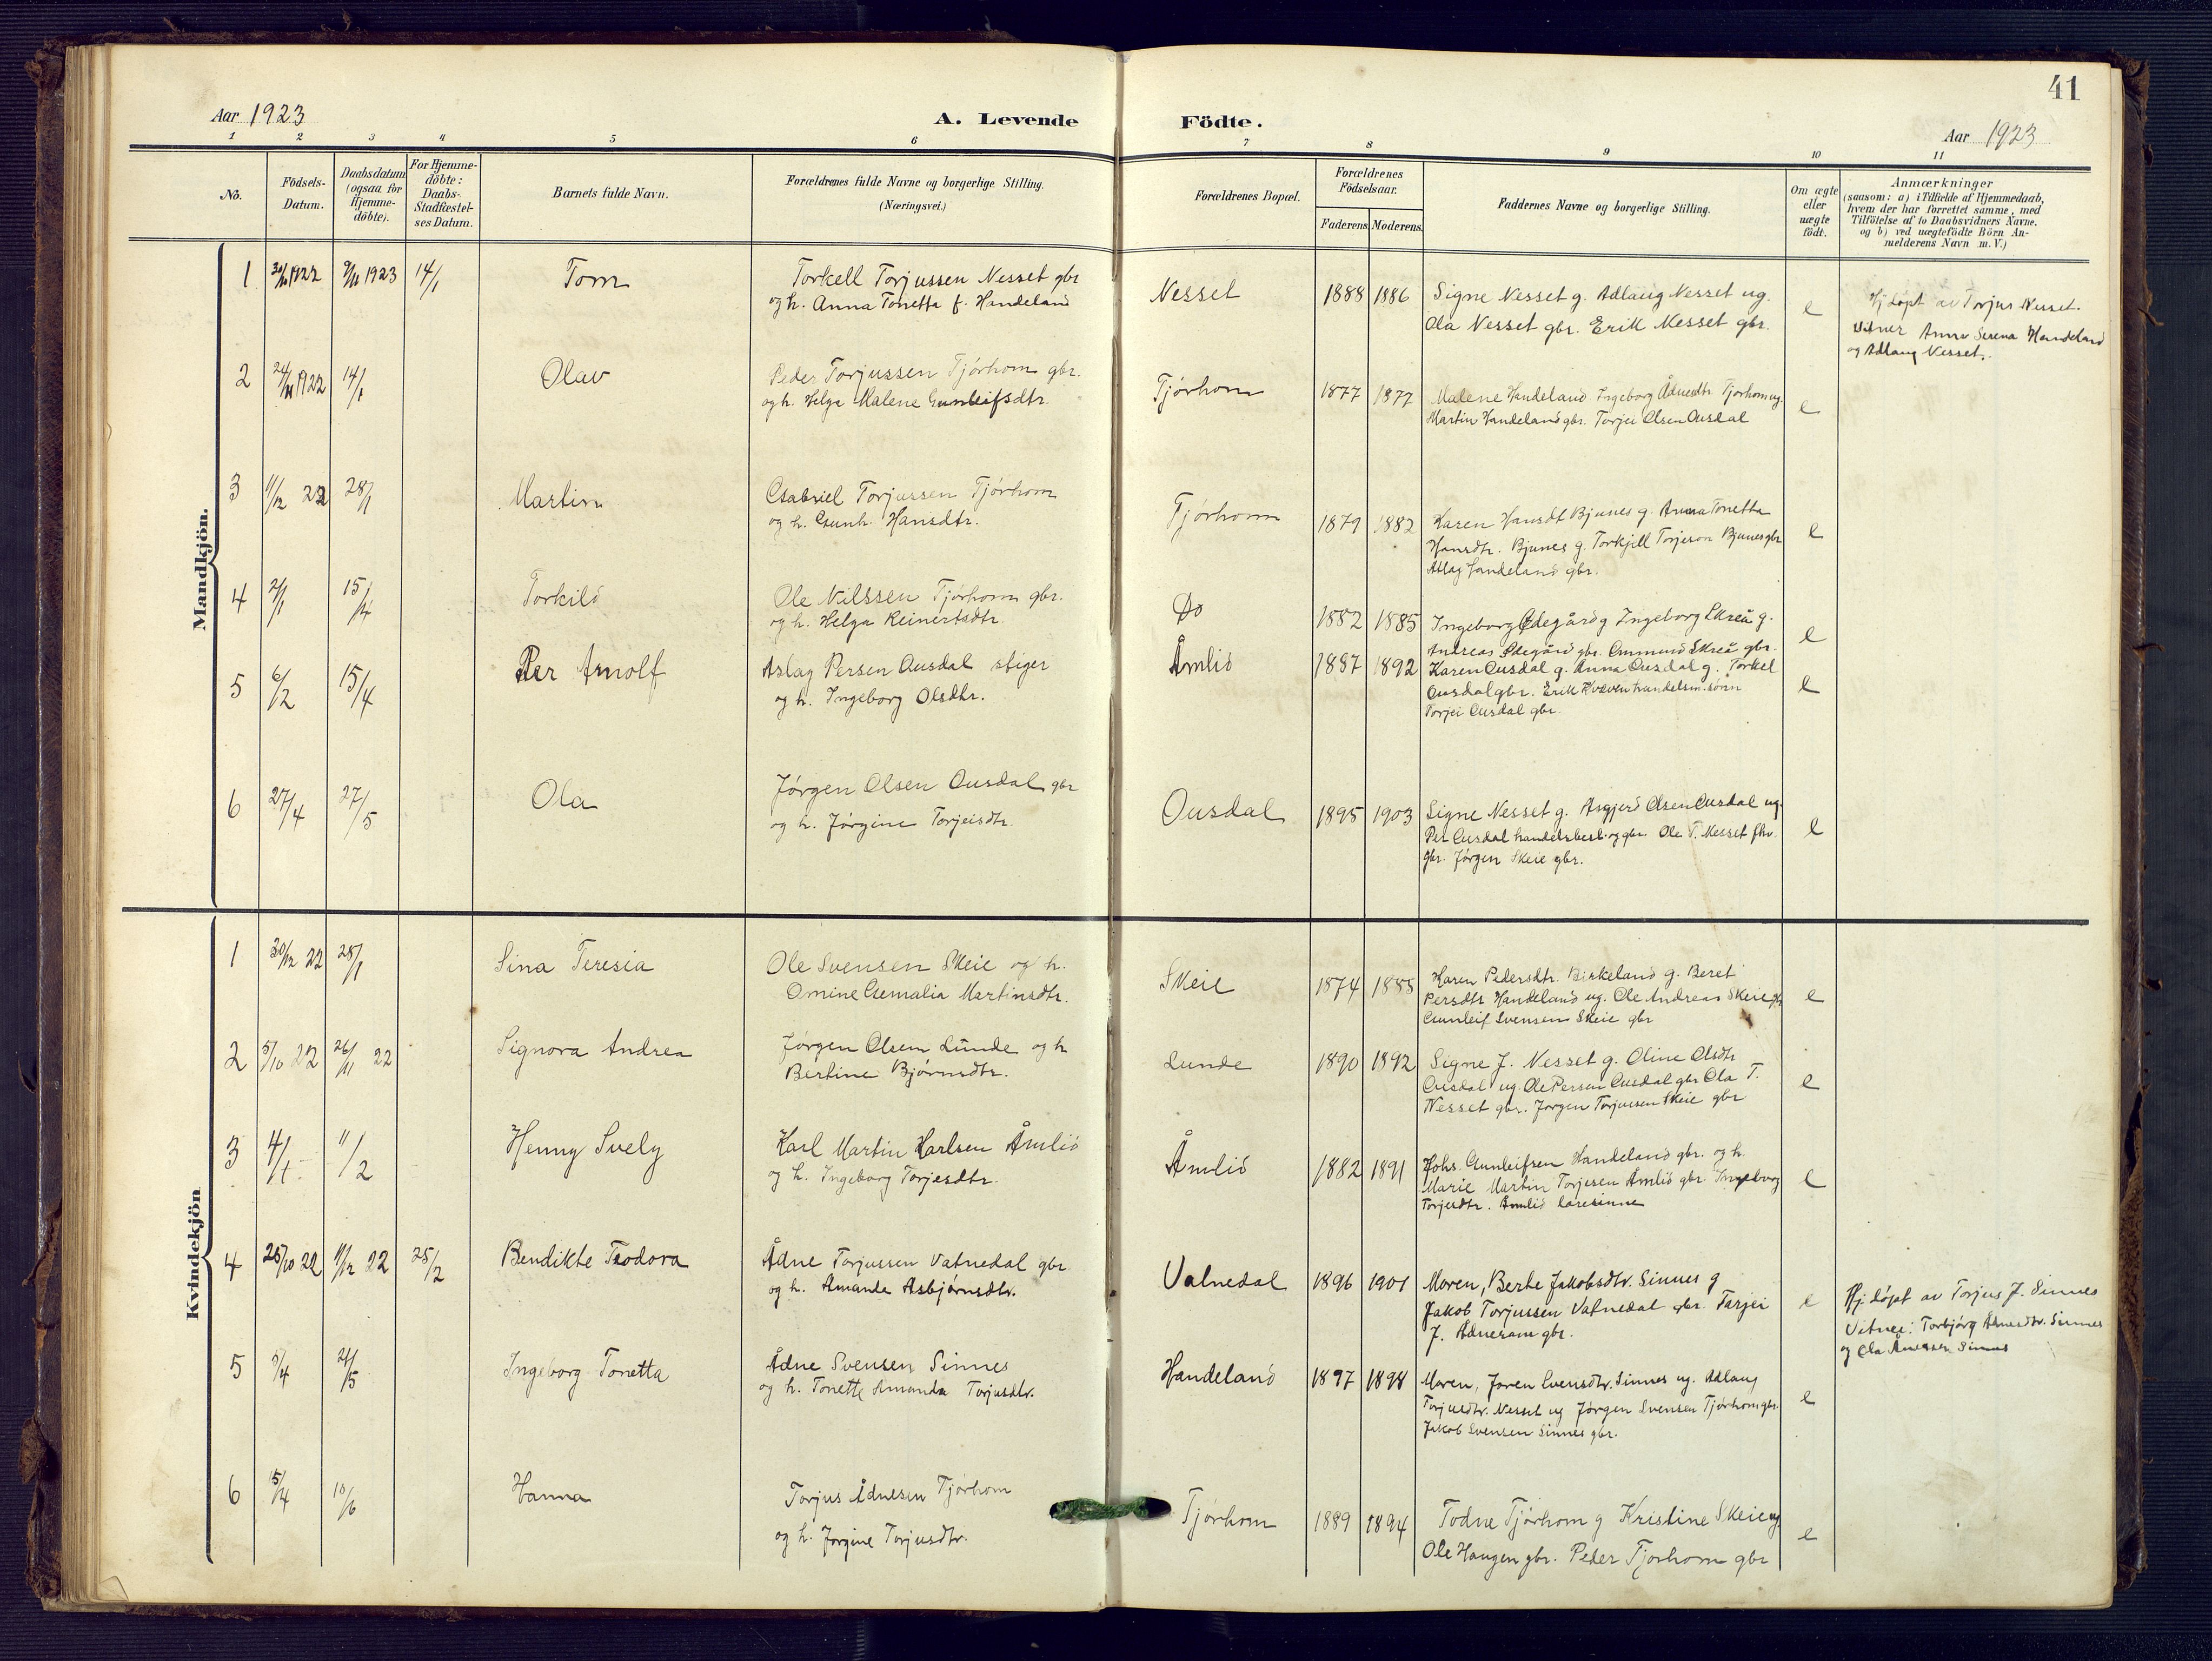 41
Aar 1923
A. Levende
Födte.
Aar 1923
1 2 3 4 5 6 7 8 9 10 11
No.
Födsels-
Datum.
Daabsdatum
(ogsaa for
Hjemme-
döbte).
For Hjemme-
döbte:
Daabs-
Stadfæstel-
ses Datum.
Barnets fulde Navn.
Forældrenes fulde Navne og borgerlige Stilling.
(Næringsvei.)
Forældrenes Bopæl.
Forældrenes
Födselsaar.
Faderens.
Moderens.
Faddernes Navne og borgerlige Stilling.
Om ægte
eller
uægte
født.
Anmærkninger
(saasom: a) i Tilfælde af Hjemmedaab,
hvem der har forrettet samme, med
Tilföielse af to Daabsvidners Navne.
og b) ved uægtefödte Börn An-
melderens Navn m.V.)
Mandkjön.
1 1922 1923 14/1 Tom
Torkell Torjussen Nesset gbr
og h. Anna Tonetta f. Handeland
Nesset 1888 1886
Signe Nesset g. Adlaug Nesset ug.
Ola Nesset gbr. Erik Nesset gbr.
e
Hj døpt av Torjus Nesset.
Vitner Anna Serena Handeland
og Adlaug Nesset.
2 1922 14/1 Olav
Peder Torjussen Tjørhom gbr.
og h. Helga Malene Gunleifsdtr.
Tjørhom 1877 1877
Malene Handeland Ingeborg Ådnesdtr Tjorhom ug.
Martin Handeland gbr. Torjei Olsen Ousdal
e
3 11/12 22 28/1 Martin
Gabriel Torjussen Tjørhom
og h. Gunh. Hansdtr.
Tjørhom 1879 1882
Karen Hansdt Bjunes g. Anna Tonetta
Hansdtr. Bjunes g. Torkjell Torjeson Bjunes gbr
Aslag Handeland gbr.
e
4 2/1 15/4 Torkild
Ole Nilssen Tjørhom gbr.
og h. Helga Reinertsdtr.
Do 1882 1885
Ingeborg Ødegård g Ingeborg Skreå g.
Andreas Ødegård gbr. Ommund Skreå gbr.
e
5 6/2 15/4 Per Arnolf
Aslag Persen Ousdal stiger
og h. Ingeborg Olsdtr.
Åmlid 1887 1892
Karen Ousdal g. Anna Ousdal g. Torkel
Ousdal gbr. Erik Kvæven handelsm. sønn
Torjei Ousdal gbr.
e
6 27/4 27/5 Ola
Jørgen Olsen Ousdal gbr
og h. Jørgine Torjeisdtr.
Ousdal 1895 1903
Signe Nesset g. Asgjerd Olsen Ousdal ug.
Per Ousdal handelsbest. og gbr. Ole T. Nesset fhv.
gbr. Jørgen Skeie gbr.
e
Kvindekjön
1 30/12 22 28/1 Sina Teresia
Ole Svensen Skeie og h.
Omine Gemalia Martinsdtr.
Skeie 1874 1885
Karen Pedersdtr. Birkeland g. Beret
Persdtr Handeland ug. Ole Andreas Skeie gbr
Gunleif Svensen Skeie gbr
e
2 5/10 22 26/11 22 Signora Andrea
Jørgen Olsen Lunde og h
Bertine Bjørnsdtr.
Lunde 1890 1892
Signe J. Nesset g. Oline Olsdtr
Ousdal ug. Ole Persen Ousdal gbr Ola T.
Nesset gbr. Jørgen Torjussen Skeie gbr
e
3 4/1 11/2 Henny Svely
Karl Martin Karlsen Åmlid
og h. Ingeborg Torjesdtr.
Åmlid 1882 1891
Johs. Gunleifsen Handeland gbr. og h.
Marie Martin Torjesen Åmlid gbr. Ingeborg
Torjesdtr. Åmlid lærerinne
e
4 25/10 22 11/12 22 25/2 Bendikte Teodora
Ådne Torjussen Vatnedal gbr
og h. Amanda Asbjørnsdtr.
Vatnedal 1896 1901
Moren, Berte Jakobsdtr. Sinnes g
Jakob Torjussen Vatnedal gbr. Tarjei
J. Ådneram gbr.
e
Hj. døpt av Torjus J. Sinnes
Vitner: Torbjørg Ådnesdtr. Sinnes
og Ola Sinnes
5 5/4 21/5 Ingeborg Tonetta
Ådne Svensen Sinnes
og h. Tonette Amanda Torjusdtr.
Handeland 1897 1898
Moren, Joren Svensdtr. Sinnes ug. Adlaug
Torjusdtr. Nesset ug Jørgen Svensen Tjørhom gbr.
Jakob Svensen Sinnes gbr.
e
6 15/4 10/6 Hanna
Torjus Ådnesen Tjørhom
og h. Jørgine Torjusdtr.
Tjørhom 1889 1894
Todne Tjørhom g Kristine Skeie ug.
Ole Haugen gbr. Peder Tjorhom gbr
e